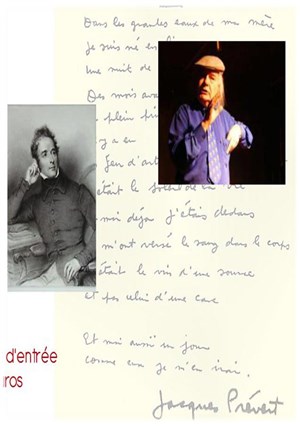 Dans les grandes eaux de ma mère
je suis né en
une nuit de
Des mois ava
plein
y a eu
feu d'art
était le soleil de
moi déjà j'étais dedans
m'ont versé le sang dans le corps
était le vin d'une source
et pas celui d'une cave
Et moi aussi un jour
comme eux je m'en irai.
Jacques Prévert
d'entrée
uros